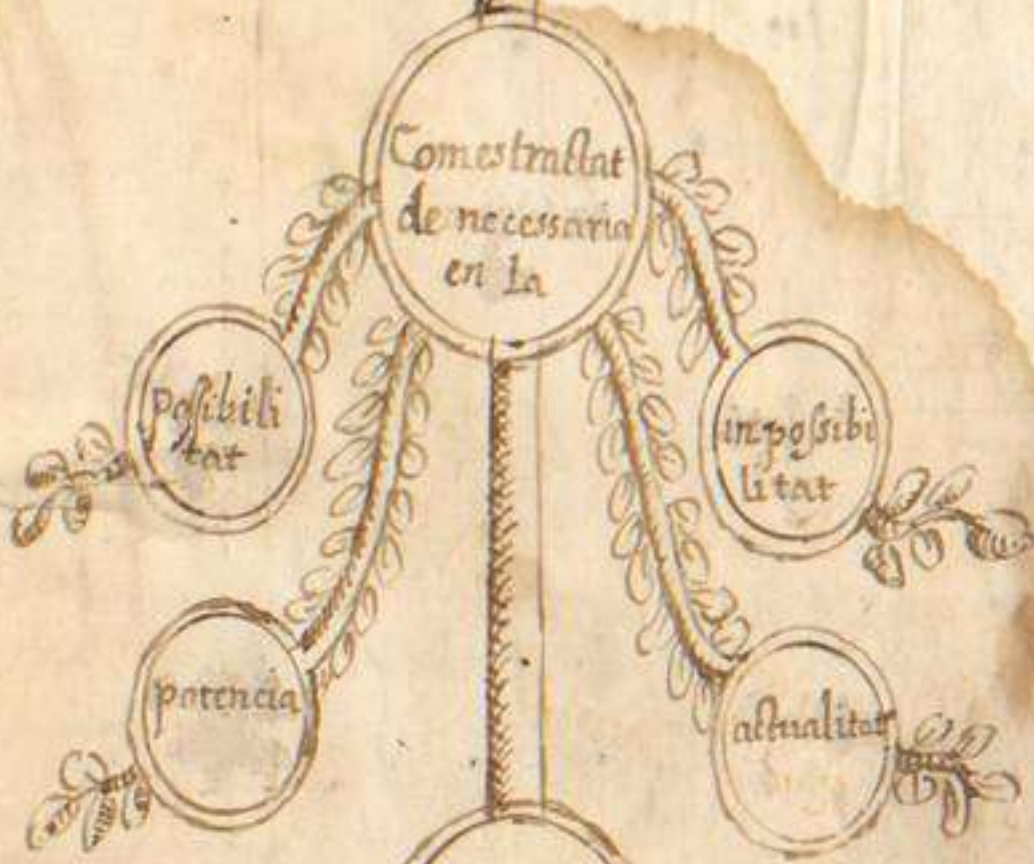 Comestractat
de necessaria
en la
Possibili
tat
impossibi
litat
potencia
actualitat